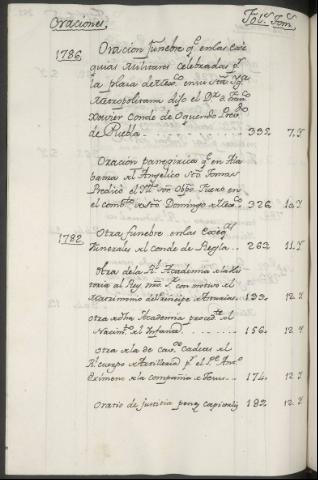 Oraciones. Fol.s Tom.s
1786 Oracion funebre q.e en las exe
quias Militares celebradas p.r
la plaza de Mex.co en su Sta Yg.a
Metropolitana dijo el D.r d. Fran.co
Xavier Conde de Oquendo Preb.do
de Puebla. 332 7.º
Oracion panegirica q.e en Ala
banza al Angelico Sto. Tomas
Predicó el Ill.mo Obpo. en
el comb.to de Sto Domingo de Mex.co 326 10.º
1782 Otra funebre en las Exeq.s
funerales del conde de Regla. 262 11.º
Otra de la R.l Academia de la His
toria al Rey nro S.r con motivo del
Matrimonio del Principe de Asturias. 133. 12.º
otra de dha Academia al
Nacim.to del Infante 156. 12.º
otra de la de cav.s cadetes del
R.l cuerpo de Artilleria p.r el P.e Ant.o
Eximeno de la compañia de Jesus. 174. 12.º
Oratio de justicia 182 12.º